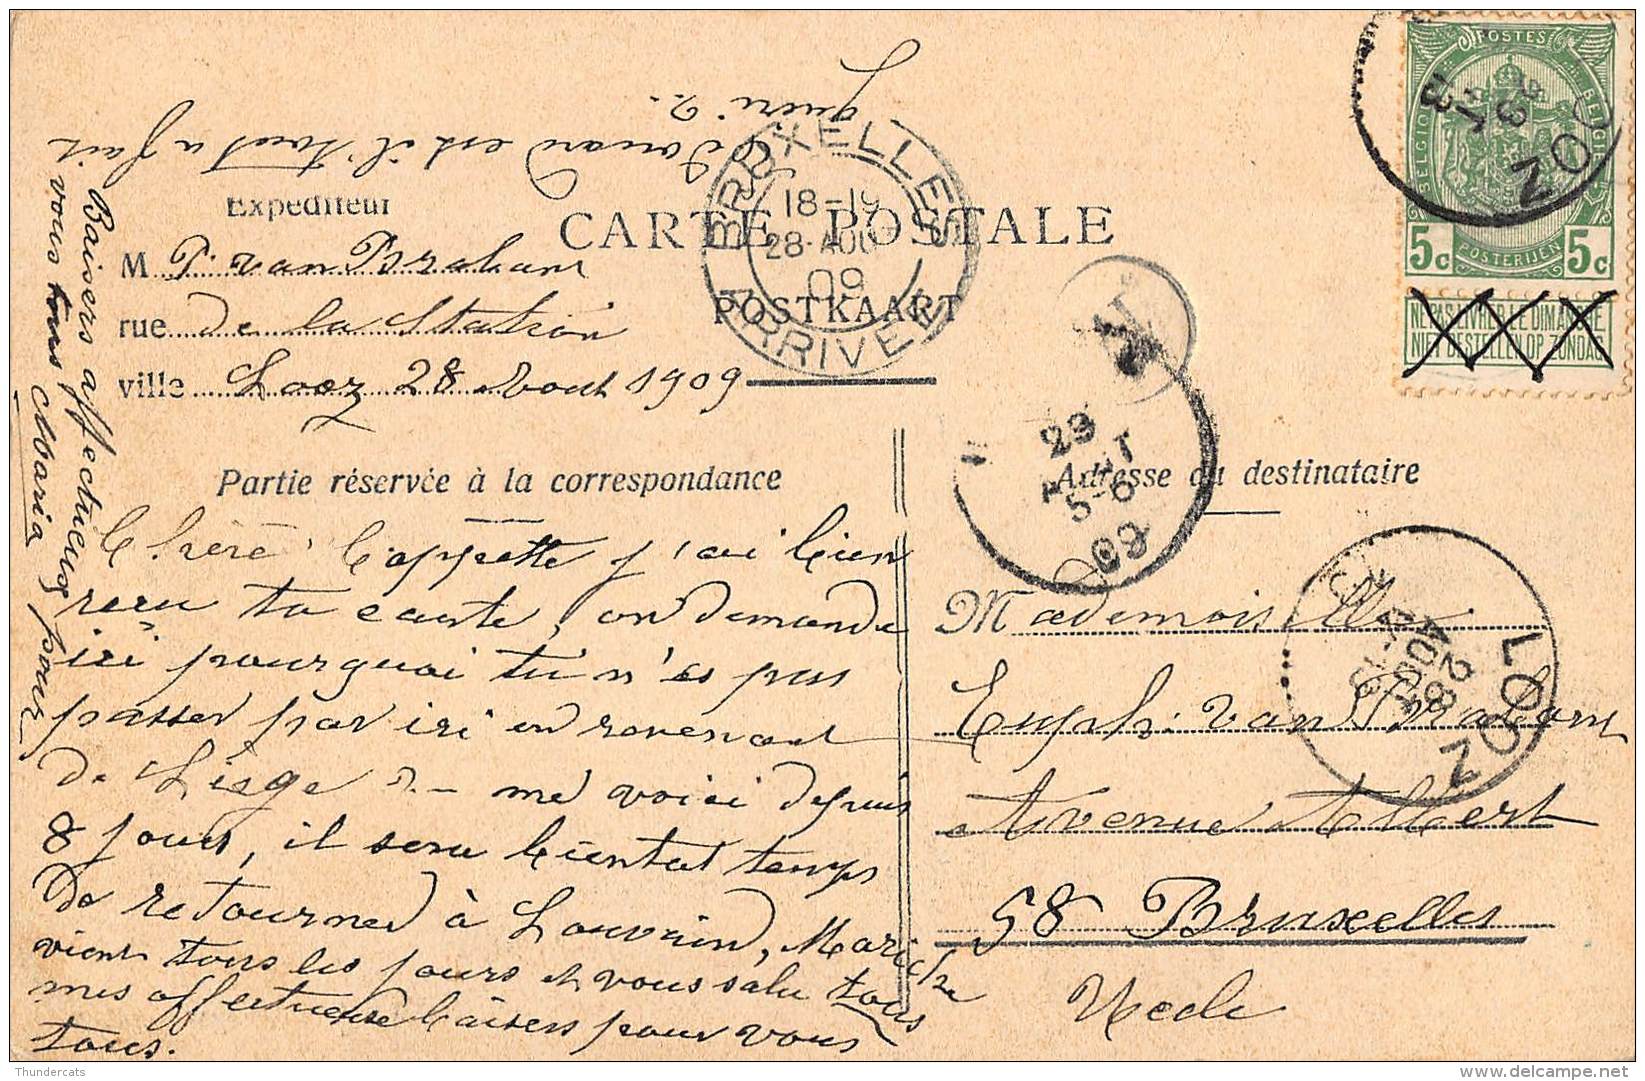 guéri ?.
Edouard est il tout a fait
Expéditeur
M P. van Brabant
rue de la Station
ville Looz 28 Aout 1909
CARTE POSTALE
POSTKAART
BRUXELLES
18-19
28 AOUT
09
ARRIVEE
POSTES
BELGIQUE
BELGIË
POSTERIJEN
5c 5c
NE PAS LIVRER LE DIMANCHE
NIET BESTELLEN OP ZONDAG
29
AOUT
5-6
09
LOON
28
AOUT
Partie réservée à la correspondance
Adresse du destinataire
Chère Cappette j'ai bien
reçu ta carte, on demande
ici pourquoi tu n'es pas
passer par ici en revenant
de Liège ? - me voici depuis
8 jours, il sera bientot temps
de retourner à Louvain, Marieke
vient tous les jours et vous salu tous
mes affectueuse baisers pour vous
tous.
Baisers affectueux pour
vous tous Maria
Mademoiselle
Euph. van Brabant
Avenue Albert
58 Bruxelles
Uccle
Thundercats
delcampe.net